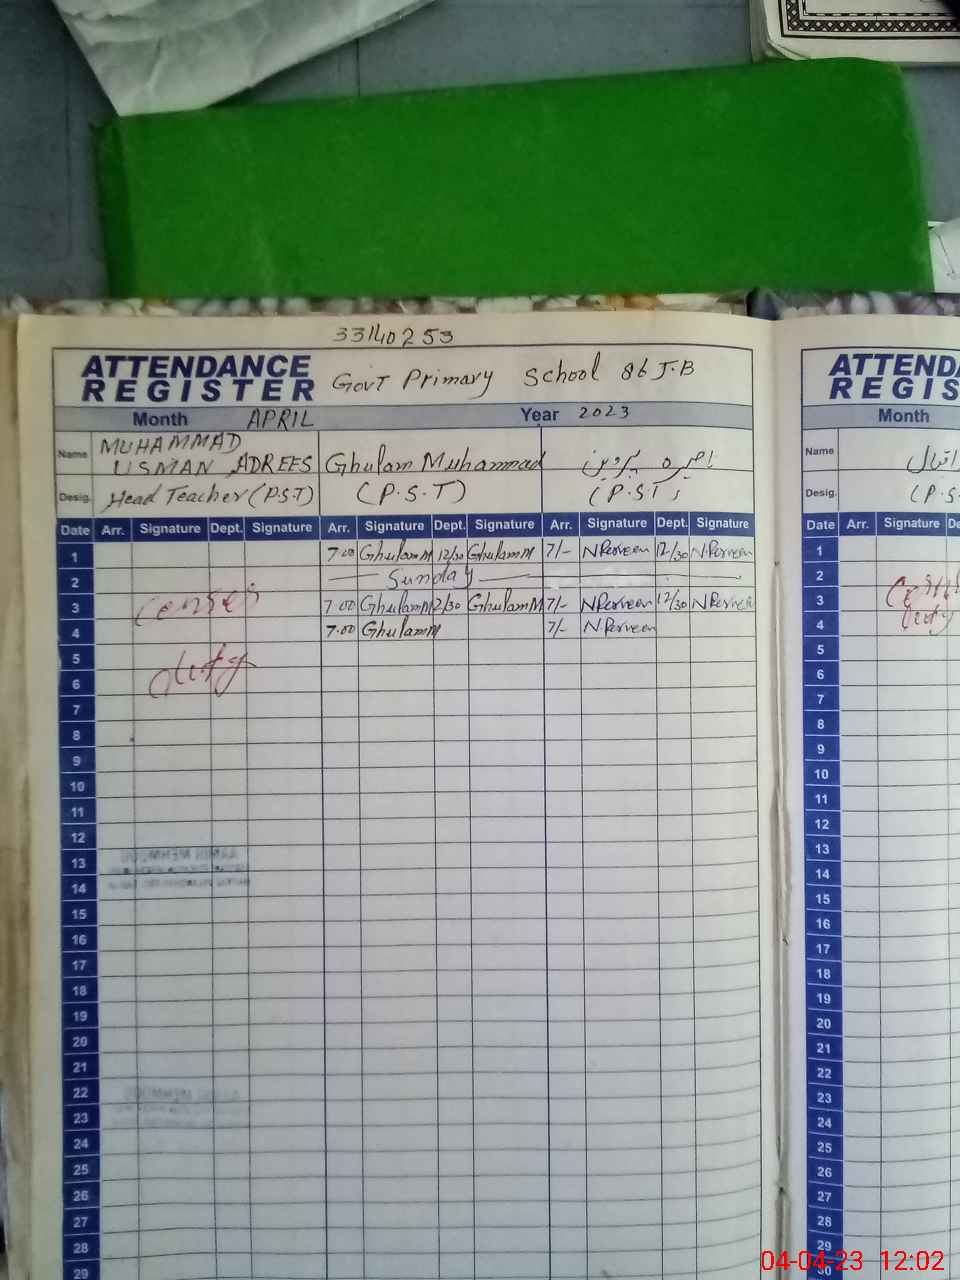 33140253
ATTENDANCE
REGISTER
Govt Primary School 86 J.B
Month APRIL Year 2023
Name MUHAMMAD USMAN ADREES Ghulam Muhammad پروین
Desig. Head Teacher (P.S.T) (P.S.T) (P.S.T)
Date Arr. Signature Dept. Signature Arr. Signature Dept. Signature Arr. Signature Dept. Signature
1 7.00 Ghulam M 12/30 Ghulam M 7/- N Perveen 12/30 N.Perveen
2 Sunday
3 7.00 Ghulam M 12/30 Ghulam M 7/- N Perveen 12/30 N Perveen
4 7.00 Ghulam M 7/- N Perveen
censes
duty
5
6
7
8
9
10
11
12
13
14
15
16
17
18
19
20
21
22
23
24
25
26
27
28
29
ATTENDA
REGIS
Month
Name اقبال
Desig. (P.S
Date Arr. Signature De
1
2
3
4
duty
5
6
7
8
9
10
11
12
13
14
15
16
17
18
19
20
21
22
23
24
25
26
27
28
29
30
04-04-23 12:02